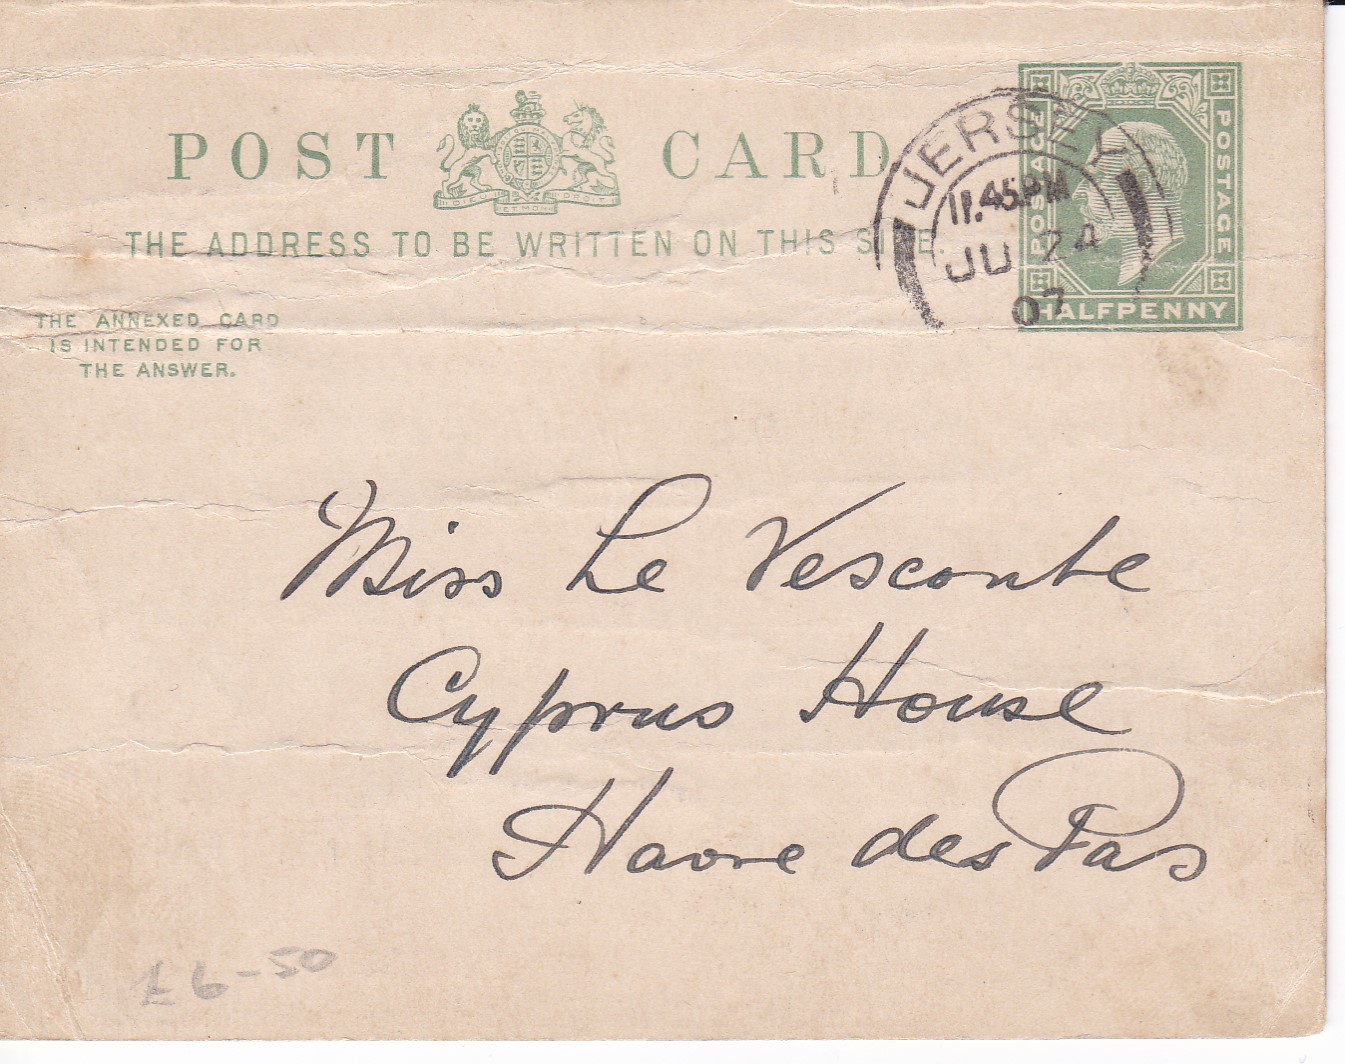 POST CARD
DIEU ET MON DROIT
THE ADDRESS TO BE WRITTEN ON THIS SIDE.
THE ANNEXED CARD
IS INTENDED FOR
THE ANSWER.
POSTAGE
POSTAGE
HALFPENNY
JERSEY
11.45PM
JU 24
07
Miss Le Vesconte
Cyprus House
Havre des Pas
£6-50